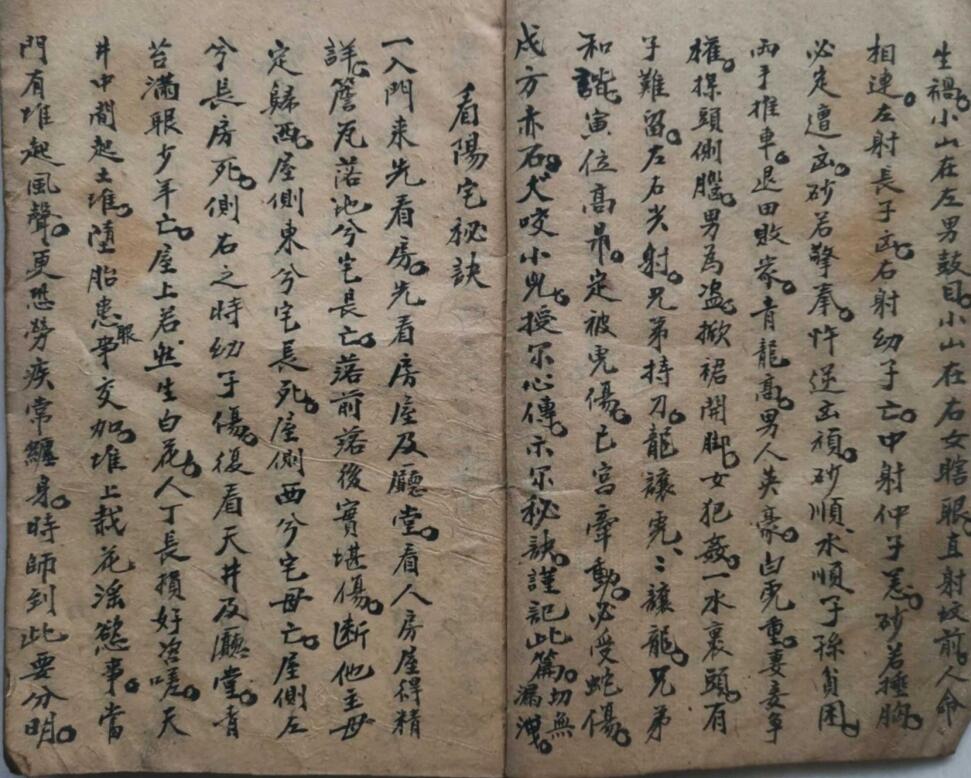 生禍。小山在左男鼓目。小山在右女瞎眼直射坟前。人命
相連。左射長子凶。右射幼子亡。中射仲子忌。砂若捶胸。
必定遭凶。砂若擎拳。忤逆凶頑。砂順水順子孫貧困。
兩手推車。退田敗家。青龍高。男人英豪。白虎重。妻妾爭
權。探頭側腦。男為盗。掀裙開脚。女犯姦。一水裹頭。有
子難留。左右尖射。兄弟持刀。龍讓虎。〻讓龍。兄弟
和諧。寅位高昂。定被虎傷。巳宮牽動。必受蛇傷。
戌方赤石。犬咬小児。授尔心傳。示尔秘訣。謹記此篇。切無漏洩。
看陽宅秘訣
一入門来先看房。先看房屋及廳堂。看人房屋得精
詳。簷瓦落地兮宅長亡。落前落後實堪傷。断他主母
定歸西。屋側東兮宅長死。屋側西兮宅母亡。屋側左
兮長房死。側右之時幼子傷。復看天井及廳堂。青
苔滿眼少年亡。屋上若然生白花。人丁長損好咨嗟。天
井中間起土堆。墮胎患眼事交加。堆上栽花淫慾事。當
門有堆起風聲。更恐勞疾常纏身。時師到此要分明。